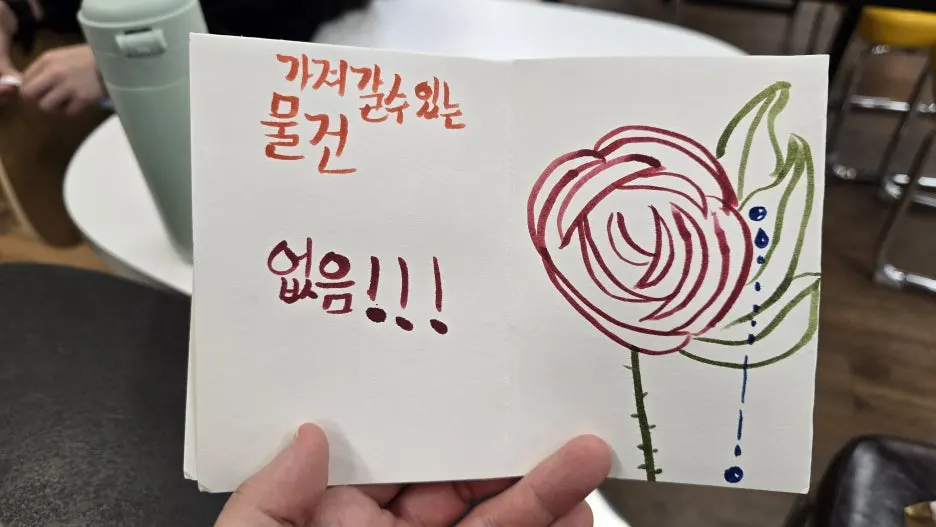 가져갈수있는
물건
없음!!!